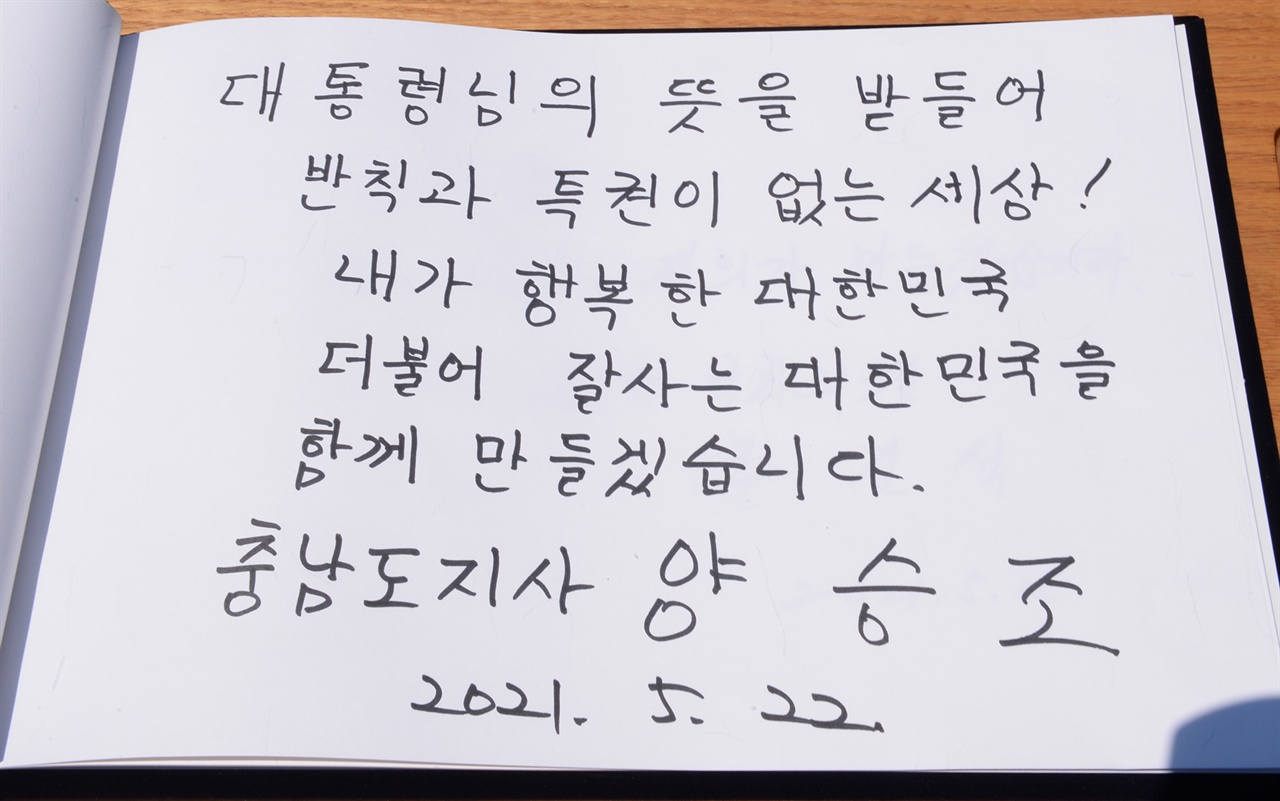 대통령님의 뜻을 받들어
반칙과 특권이 없는 세상!
내가 행복한 대한민국
더불어 잘사는 대한민국을
함께 만들겠습니다.
충남도지사 양승조
2021. 5. 22.